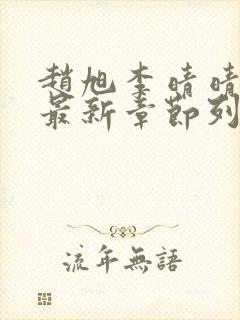 趙旭李晴晴
最新章節列
流年無語